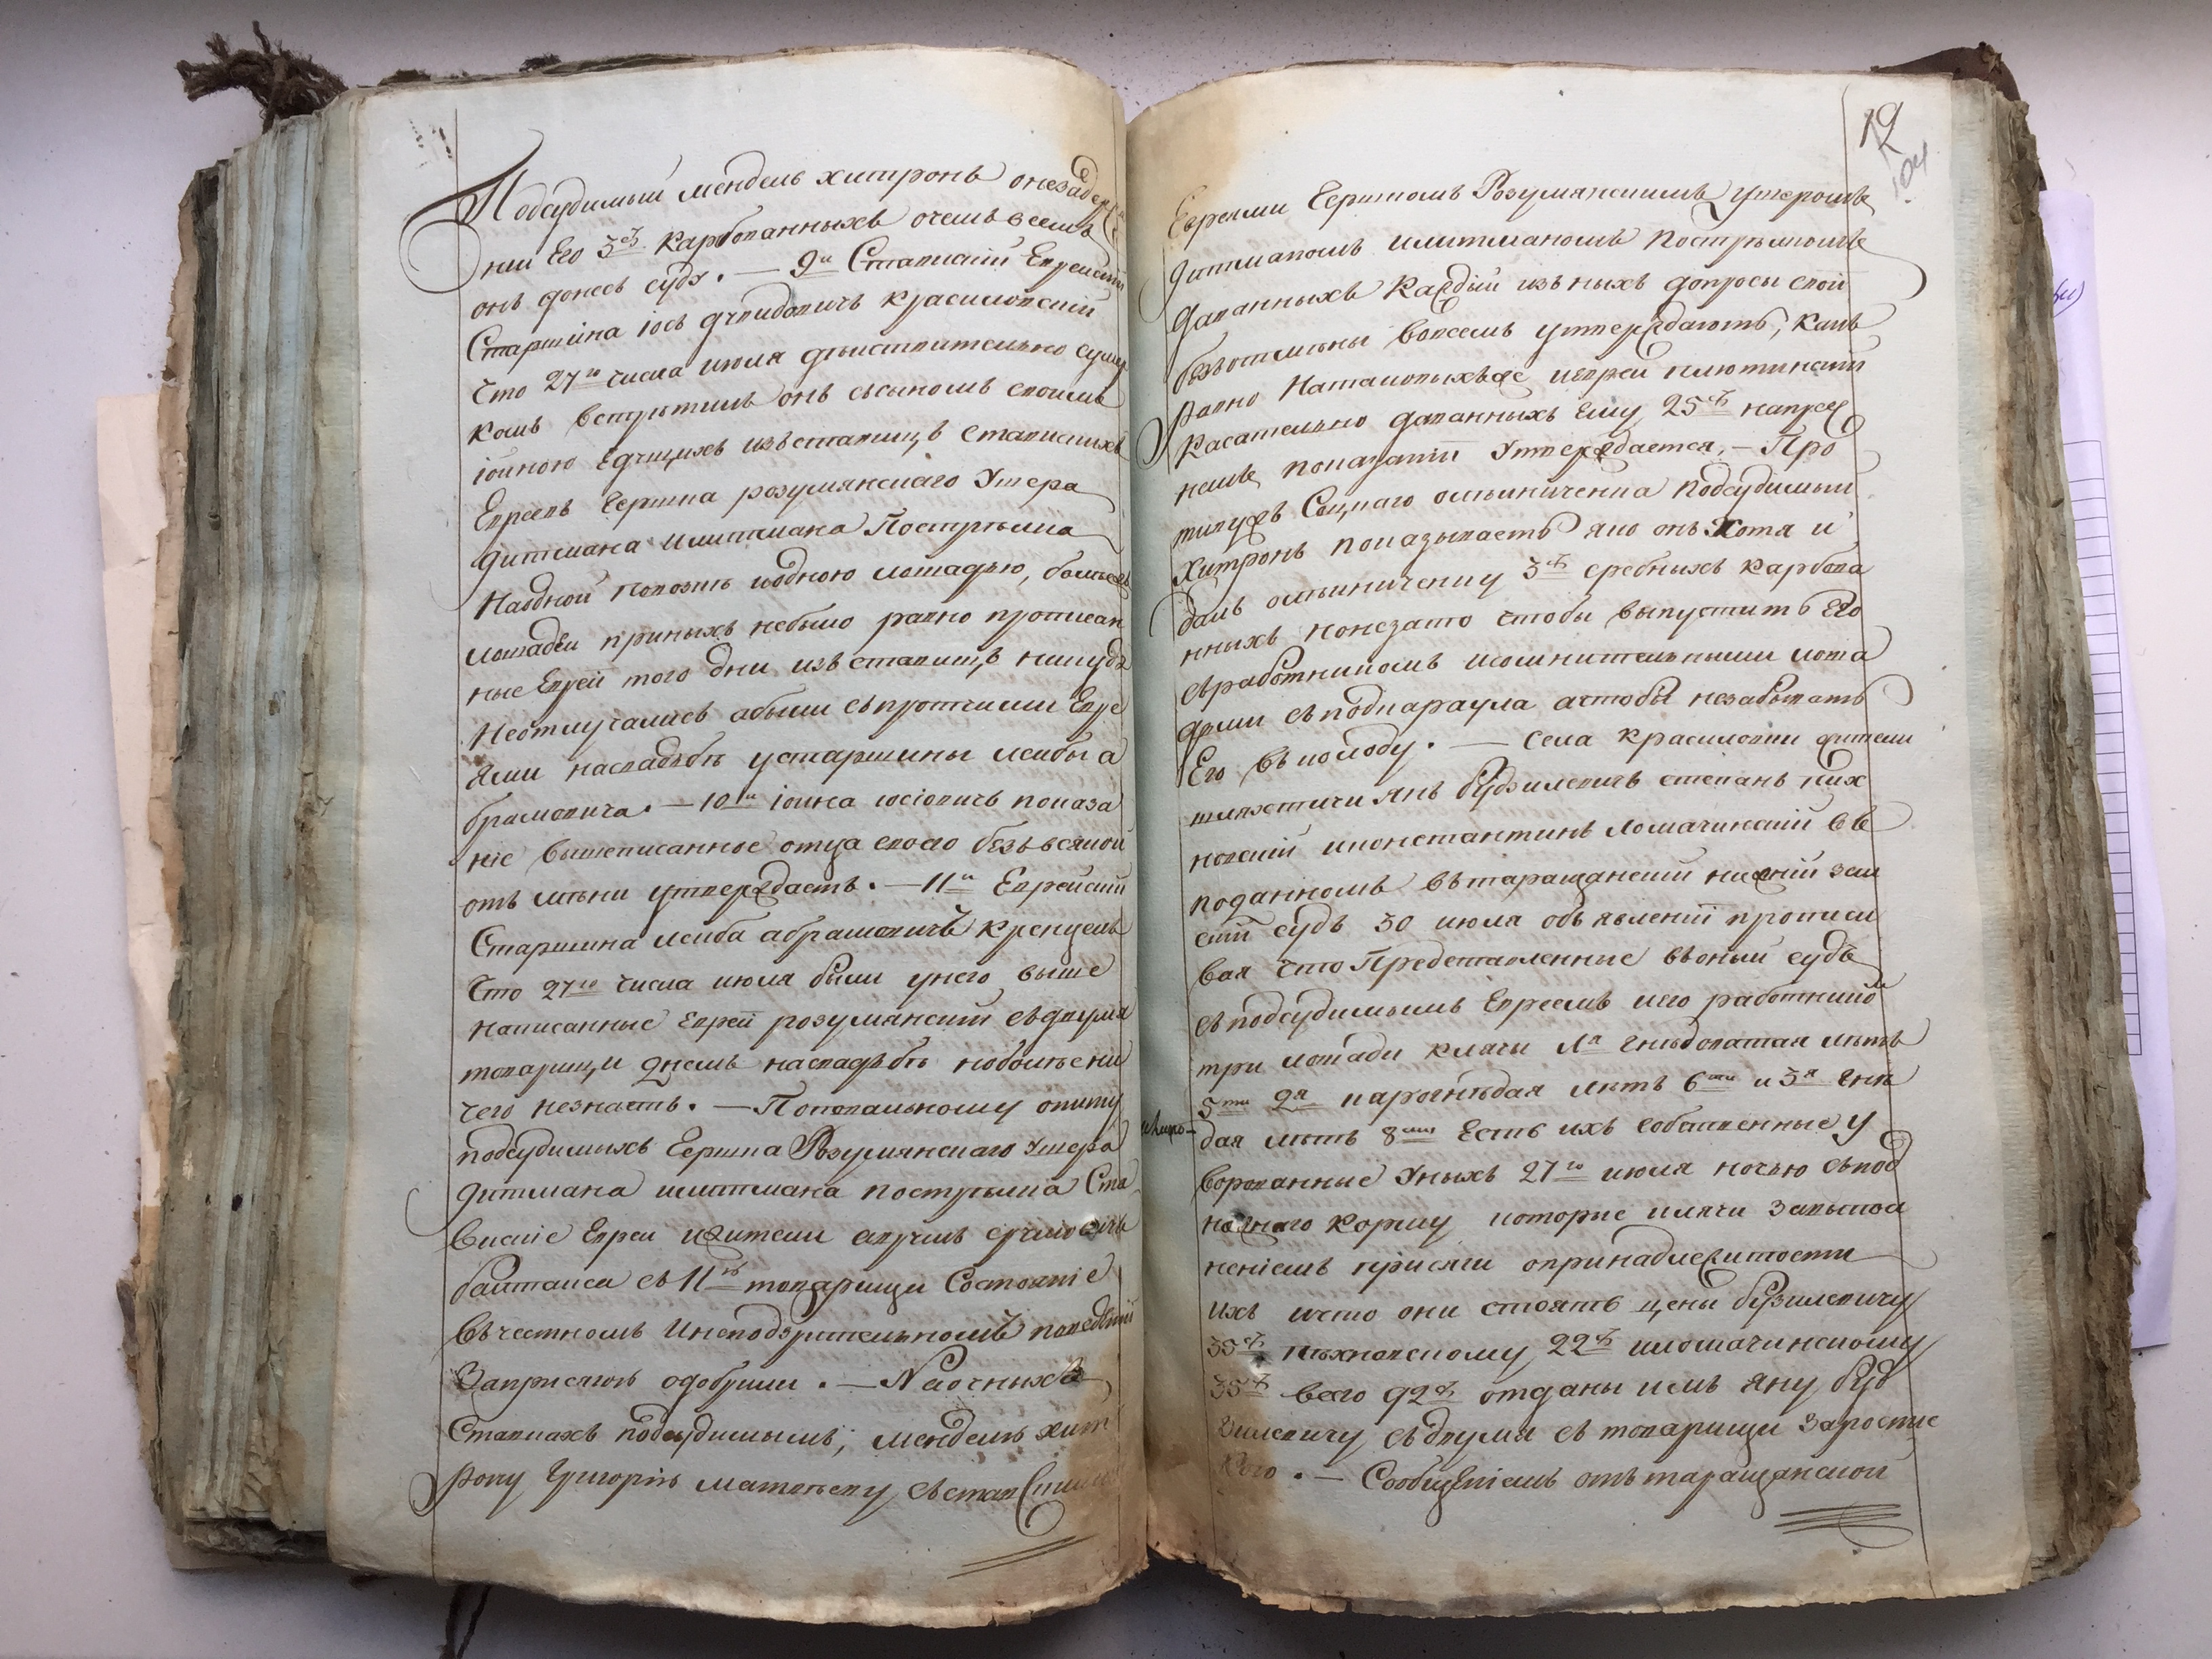 Подсудимый мендель хитронъ онезадер
нии Его 3 карбованныхъ очемъ всемъ
онъ донесъ суду. — 9й Ставискій Еврейскій
Старшина іось дчвидовичъ красиловскій
Что 27го числа июля дѣйствительно сумер
комъ встрѣтилъ онъ сысыномъ своимъ
іойною Едущихъ изъставищъ ставискихъ
Евреевъ Гершка розумянскаго Ушера
дитмана иитмана Пострѣлка
Наодной повозкѣ иодною лошадью, болѣе
лошадей приныхъ небыло равно прописан
ные Евреи того дни изъ ставищъ никуда
Неотлучались абыли съпротчими Евре
ями насвадьбѣ устаршины лейбы а
брамовича. — 10й іойна іосіовичъ показа
ніе вышеписанное отца своего безъ всякой
отъ мѣны утверждаетъ. — 11й Еврейскій
Старшина лейба абрамовичъ кренцель
Что 27го числа июля были унего выше
написанные Евреи розумянскій съдвумя
товарищи днемъ насвадьбѣноболѣе ни
чего незнаетъ. — Поповальному опиту
подсудимыхъ Гершка Розумянскаго Ушера
дитмана иитмана пострѣлка Ста
вискіе Евреи жители
съ 11 товарищи Состояніе
Въчестномъ Инеподзрительномъ поведеніи
Заприсягою одобрили. — Наочныхъ
Ставкахъ подсудимымъ, менделю хит
рону Григорію матвѣеву, състав
19
104
Евреями Гершкомъ Розумянскимъ Ушеромъ
дитманомъ иитманомъ Пострѣлкомъ
даванныхъ Каждый изъ ныхъ допросы свои
безъотмѣны вовсемъ утверждаютъ, какъ
равно Натаковыхъже иеврей плютинскій
Касательно даванныхъ Ему 25 напред
немъ показаніи Утверждается. — Про
тивужъ Соцкаго олѣйниченка подсудимый
Хитронъ показываетъ яко онъ Хотя и
далъ олѣйниченку 3 сребныхъ карбова
нныхъ нонезато чтобы выпустить Его
съработникомъ исомнительными лоша
дьми съподкараула ачтобы незабивать
Его въколоду. — Села красиловки жители
шляхтичи янъ будзилевичъ степанъ пих
новскій иконстантинъ ломачинскій въ
поданномъ въ таращанскій нижній зем
скій судъ 30 июля объявленіи прописи
вая Что Представленные въоный судъ
съподсудимымъ Евреемъ иего работником
три лошади клячи 1я гнѣдопатая лѣтъ
5ти 2я карогнѣдая лѣтъ 6ти и 3я гнѣ
дая лѣтъ 8ми Есть ихъ собственные у
ворованные Уныхъ 27го июля ночью съпод
ножнаго Корму которые клячи Завыпол
неніемъ присяги опринадлежитости
ихъ ичто они стоятъ цены будзилевичу
35 пѣхновскому 22 иломачинскому
35 всего 92 отданы имъ яну буд
зилевичу съдвумя съ товарищи Заростис
кою. — Сообщеніемъ отъ таращанской